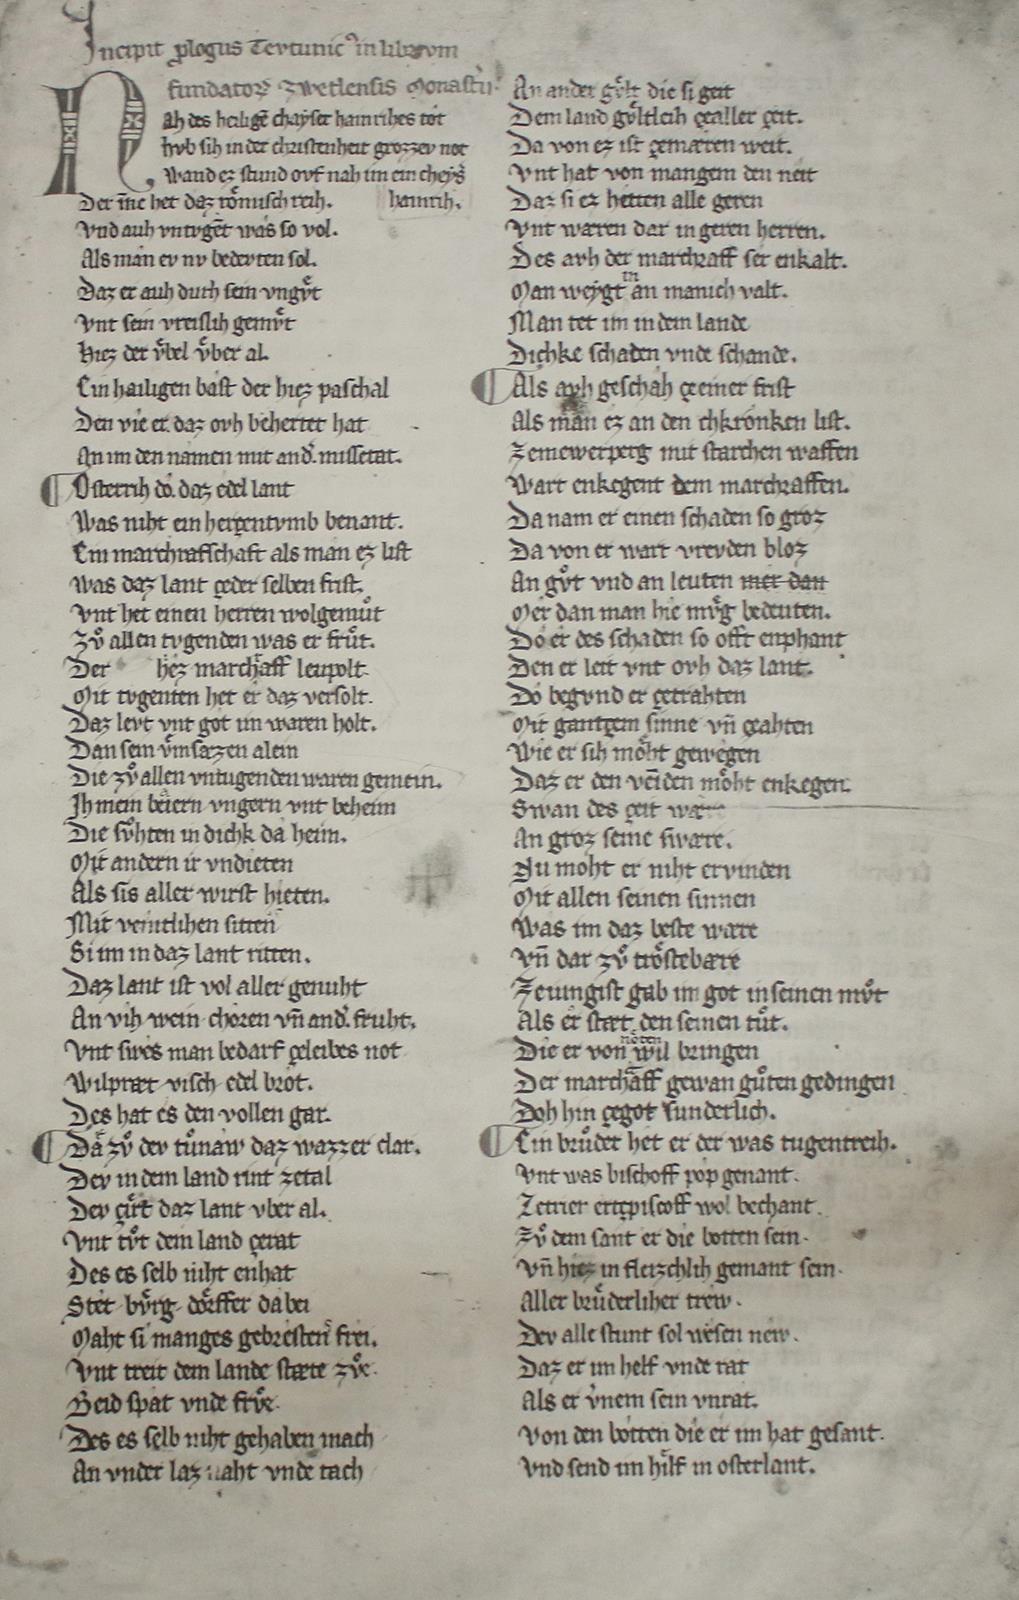 Incipit plogus Tevtunicꝰ in librvm
fundatorꝝ Zwetlensis Monastrii
Nah des heiligē chayser hainrihes tot
hvb sih in der christenheit grozzev not
Wand ez stund ovf nah im ein cheyſ
hainrih.
Der īne het daz roͤmisch reih.
Vnd auh vntvgēt was so vol.
Als man ev nv bedevten sol.
Daz er auh durh sein vngvͤt
Vnt sein vreislih gemvͤt
Hiez der vͤbel vͤber al.
Ein hailigen bast der hiez paschal
Den vie er. daz ovh behertet hat
An im den namen mit and̾. missetat.
Osterrih do. daz edel lant
Was niht ein herzentvmb benant.
Ein marchrafschaft als man ez list
Was daz lant zeder selben frist.
Vnt het einen herren wolgemuͦt
Zvͦ allen tvgenden was er fruͦt.
Der hiez marchraff leupolt.
Mit tvgenten het er daz versolt.
Daz levt vnt got im waren holt.
Dan sein vͤmsæzen alein
Die zvͦ allen vntugenden waren gemein.
Jh mein beiern vngern vnt beheim
Die svͦhten in dichk da heim.
Mit andern ir vndieten
Als sis aller wirst hieten.
Mit veintlihen sitten
Si im in daz lant ritten.
Daz lant ist vol aller genuht
An vih wein choren vn̄ and̾. fruht.
Vnt swes man bedarf zeleibes not
Wilpræt visch edel brot.
Des hat es den vollen gar.
Da zvͦ dev tuͦnaw daz wazzer clar.
Dev in dem land rint zetal
Dev zirt daz lant vber al.
Vnt tvͦt dem land zerat
Des es selb niht enhat
Stet bvͤrg dorffer da bei
Maht si manges gebresten frei.
Vnt treit dem lande stæte zvͦ.
Beid spat vnde frvͤ.
Des es selb niht gehaben mach
An vnder laz naht vnde tach
An ander gvͤlt die si geit
Dem land gvͤltleih zealler zeit.
Da von ez ist gemæren weit.
Vnt hat von mangem den neit
Daz si ez hetten alle geren
Vnt wæren dar in geren herren.
Des avh der marchraff ser enkalt.
Man weygt im an manich valt.
Man tet im in dem lande
Dichke schaden vnde schande.
Als avh geschah zeeiner frist
Als man ez an den chkroniken list.
Zemewerperg mit starchen waffen
Wart enkegent dem marchraffen.
Da nam er einen schaden so groz
Da von er wart vrevden bloz
An gvͦt vnd an leuten mer dan
Mer dan man hie mvͤg bedeuten.
Do er des schaden so offt enphant
Den er leit vnt ovh daz lant.
Do begvnd er zetrahten
Mit gantzem sinne vn̄ zeahten
Wie er sih moͤht gewegen
Daz er den veīden moͤht enkegen.
Swan des zeit wær
An groz seine swære.
Nu moht er niht ervinden
Mit allen seinen sinnen
Was im daz beste wære
Vn̄ dar zvͦ troͤstebære
Zeiungist gab im got in seinen mvͦt
Als er stæt den seinen tuͦt.
Die er von nöten wil bringen
Der marchraff gewan guͦten gedingen
Doh hin zegot sunderlich.
Ein bruͦder het er der was tugentreih.
Vnt was bischoff pop genant.
Zetrier ertzpiscoff wol bechant.
Zvͦ dem sant er die botten sein.
Vn̄ hiez in fleizchlih gemant sein.
Aller bruͤderliher trew.
Dev alle stunt sol wesen new.
Daz er im helf vnde rat
Als er vͤnem sein vnrat.
Von den botten die er im hat gesant.
Vnd send im hilf in osterlant.